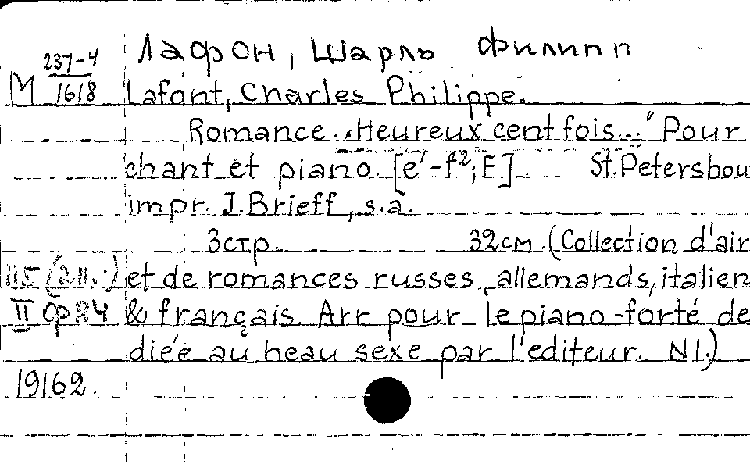 Лафон, Шарль Филипп
М 237-4/1618 Lafont, Charles Philippe.
Romance „Heureux cent fois..." Pour
chant et piano [e'-f²; E] St. Petersbou
impr. J. Brieff, s.a.
3стр. 32см. (Collection d'air
et de romances russes, allemands, italien
II ф84 & français Arr pour le piano-forté de
diée au beau sexe par l'editeur. N1.)
19162